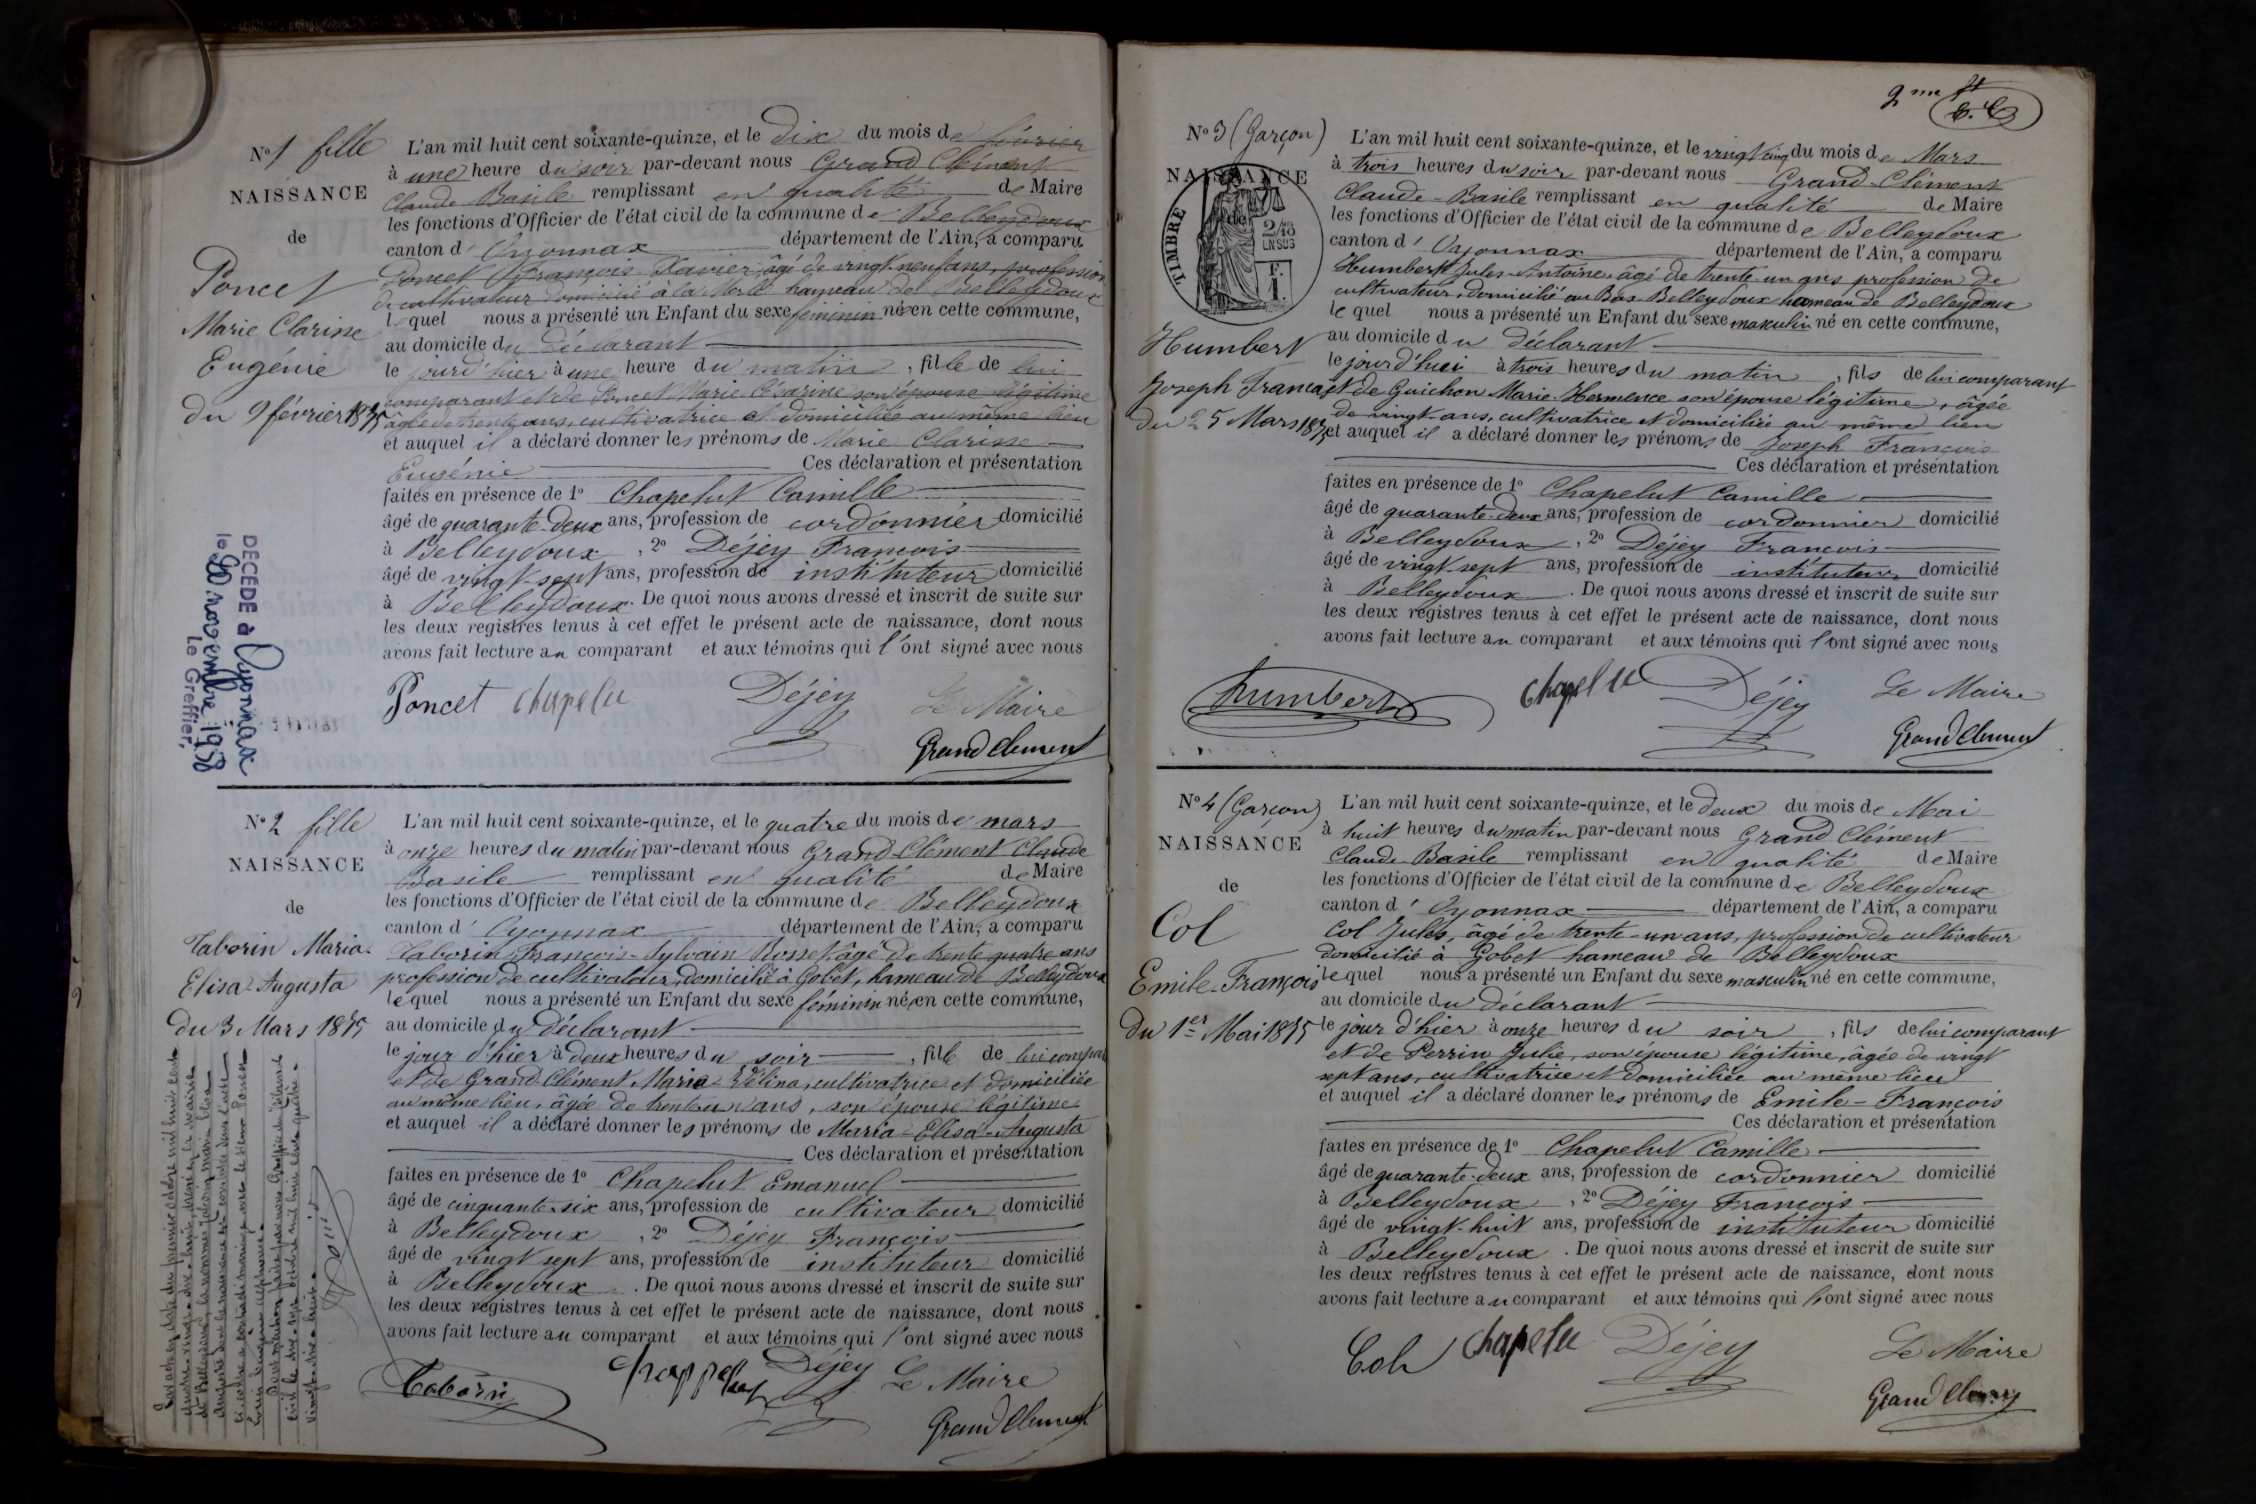 N° 1 fille
NAISSANCE
de
Poncet
Marie Clarisse
Eugénie
du 9 février 1875
L'an mil huit cent soixante-quinze, et le dix du mois de février
à une heure du soir par-devant nous Grand Clément
Claude Basile remplissant en qualité de Maire
les fonctions d'Officier de l'état civil de la commune de Belleydoux
canton d'Oyonnax département de l'Ain, a comparu
Poncet François Xavier, âgé de vingt-neuf ans, profession
de cultivateur domicilié à la hameau de Belleydoux
lequel nous a présenté un Enfant du sexe féminin né en cette commune,
au domicile du déclarant
le jour d'hier à une heure du matin, fille de lui
comparant et de Poncet Marie Césarine son épouse légitime
âgée de trente ans, cultivatrice et domiciliée au même lieu
et auquel il a déclaré donner les prénoms de Marie Clarisse
Eugénie Ces déclaration et présentation
faites en présence de 1° Chapelut Camille
âgé de quarante-deux ans, profession de cordonnier domicilié
à Belleydoux, 2° Déjey François
âgé de vingt-sept ans, profession de instituteur domicilié
à Belleydoux. De quoi nous avons dressé et inscrit de suite sur
les deux registres tenus à cet effet le présent acte de naissance, dont nous
avons fait lecture au comparant et aux témoins qui l'ont signé avec nous
Poncet Chapelu Déjey Le Maire
Grand Clement
DECEDE à Oyonnax
le novembre 1938
Le Greffier,
N° 2 fille
NAISSANCE
de
Taborin Maria
Elisa Augusta
du 3 Mars 1875
L'an mil huit cent soixante-quinze, et le quatre du mois de mars
à onze heures du matin par-devant nous Grand-Clément Claude
Basile remplissant en qualité de Maire
les fonctions d'Officier de l'état civil de la commune de Belleydoux
canton d'Oyonnax département de l'Ain, a comparu
Taborin François-Sylvain Rosset âgé de trente quatre ans
profession de cultivateur, domicilié à Gobet, hameau de Belleydoux
lequel nous a présenté un Enfant du sexe féminin né en cette commune,
au domicile du déclarant
le jour d'hier à deux heures du soir, fille de lui compar
et de Grand-Clément Maria cultivatrice et domiciliée
au même lieu, âgée de trente un ans, son épouse légitime
et auquel il a déclaré donner les prénoms de Maria-Elisa-Augusta
Ces déclaration et présentation
faites en présence de 1° Chapelut Emanuel
âgé de cinquante-six ans, profession de cultivateur domicilié
à Belleydoux, 2° Déjey François
âgé de vingt sept ans, profession de instituteur domicilié
à Belleydoux. De quoi nous avons dressé et inscrit de suite sur
les deux registres tenus à cet effet le présent acte de naissance, dont nous
avons fait lecture au comparant et aux témoins qui l'ont signé avec nous
Taborin Déjey Le Maire
Grand Clement
2me ft
N° 3 (Garçon)
NAISSANCE
de
TIMBRE
Humbert
Joseph Franços
du 25 Mars 1875
L'an mil huit cent soixante-quinze, et le vingt cinq du mois de Mars
à trois heures du soir par-devant nous Grand-Clément
Claude-Basile remplissant en qualité de Maire
les fonctions d'Officier de l'état civil de la commune de Belleydoux
canton d'Oyonnax département de l'Ain, a comparu
Humbert Jules-Antoine, âgé de trente-un ans profession de
cultivateur, domicilié au Bas Belleydoux hameau de Belleydoux
lequel nous a présenté un Enfant du sexe masculin né en cette commune,
au domicile du déclarant
le jour d'hui à trois heures du matin, fils de lui comparant
et de Guichon Marie-Hermence son épouse légitime, âgée
de vingt-ans, cultivatrice et domiciliée au même lieu
et auquel il a déclaré donner les prénoms de Joseph François
Ces déclaration et présentation
faites en présence de 1° Chapelut Camille
âgé de quarante-deux ans, profession de cordonnier domicilié
à Belleydoux, 2° Déjey François
âgé de vingt-sept ans, profession de instituteur domicilié
à Belleydoux. De quoi nous avons dressé et inscrit de suite sur
les deux registres tenus à cet effet le présent acte de naissance, dont nous
avons fait lecture au comparant et aux témoins qui l'ont signé avec nous
humbert Chapelu Déjey Le Maire
Grand Clement
N° 4 (Garçon)
NAISSANCE
de
Col
Emile-François
du 1er Mai 1875
L'an mil huit cent soixante-quinze, et le deux du mois de Mai
à huit heures du matin par-devant nous Grand Clément
Claude Basile remplissant en qualité de Maire
les fonctions d'Officier de l'état civil de la commune de Belleydoux
canton d'Oyonnax département de l'Ain, a comparu
Col Jules, âgé de trente-un ans, profession de cultivateur
domicilié à Gobet hameau de Belleydoux
lequel nous a présenté un Enfant du sexe masculin né en cette commune,
au domicile du déclarant
le jour d'hier à onze heures du soir, fils de lui comparant
et de Perrin Julie, son épouse légitime, âgée de vingt
sept ans, cultivatrice et domiciliée au même lieu
et auquel il a déclaré donner les prénoms de Emile-François
Ces déclaration et présentation
faites en présence de 1° Chapelut Camille
âgé de quarante-deux ans, profession de cordonnier domicilié
à Belleydoux, 2° Déjey François
âgé de vingt-huit ans, profession de instituteur domicilié
à Belleydoux. De quoi nous avons dressé et inscrit de suite sur
les deux registres tenus à cet effet le présent acte de naissance, dont nous
avons fait lecture au comparant et aux témoins qui l'ont signé avec nous
Col Chapelu Déjey Le Maire
Grand Clement